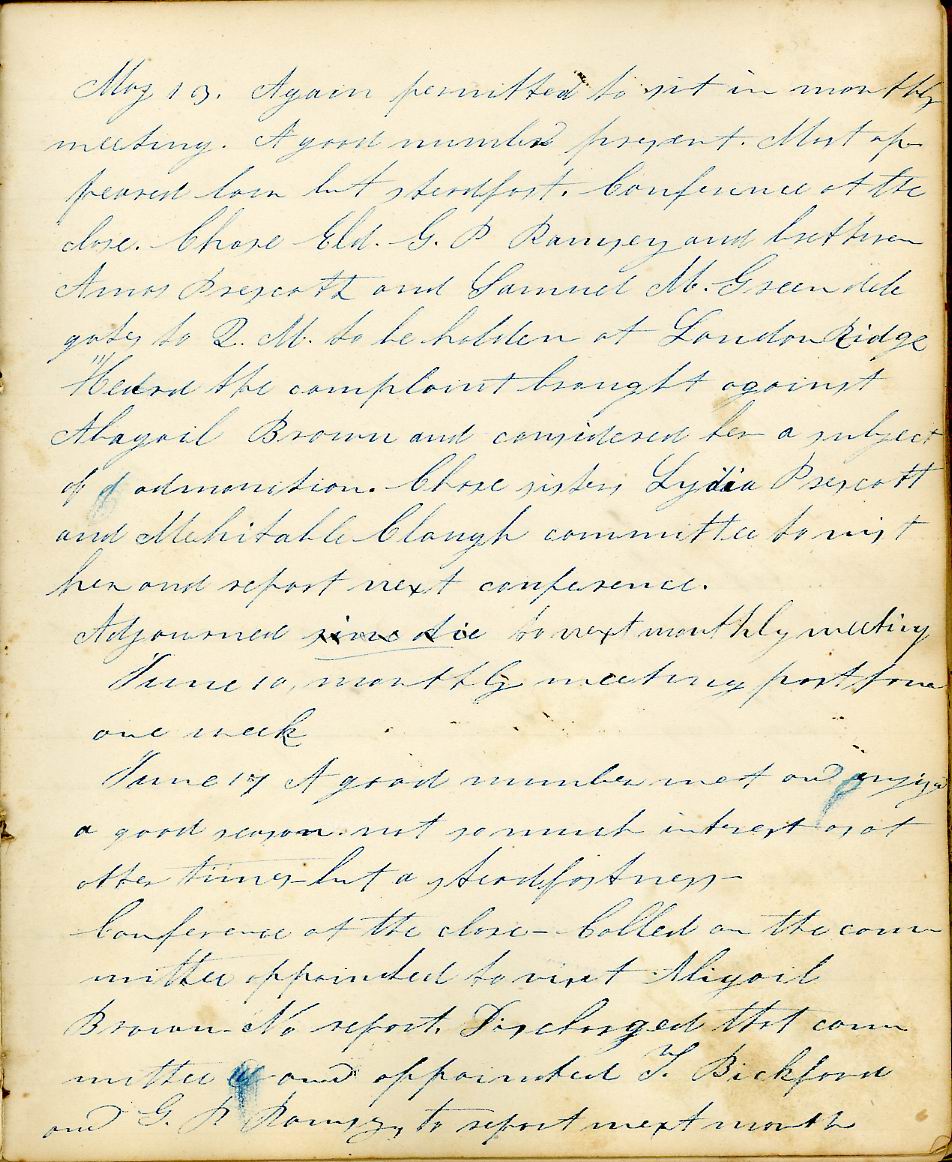 May 13. Again permitted to sit in monthly
meeting. A good number present. Most ap-
peared low but steadfast. Conference at the
close. Chose Eld. G. P Ramsey and brethren
Amos Prescott and Samuel M. Green dele
gates to Q. M. to be holden at Loudon Ridge
Heard the complaint brought against
Abagail Brown and considered her a subject
of admonition. Chose sisters Lydia Prescott
and Mehitable Clough committee to visit
her and report next conference.
Adjourned sine die to next monthly meeting
June 10, monthly meeting postpone
one week
June 17 A good number met and enjoyd
a good season. not so much intrest as at
other times- but a steadfastness-
Conference at the close- Called on the com-
mittee appointed to visit Abigail
Brown- No report. Discharged that com
mittee and appointed T. Bickford
and G. P. Ramsey, to report next month